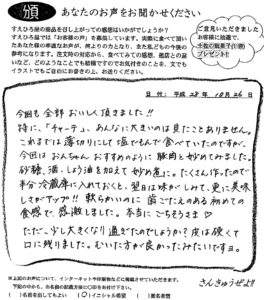 頒 あなたのお声をお聞かせください
すえひろ屋の商品を召し上がっての感想はいかがでしょうか?
すえひろ屋では「お客様の声」を募集しています。実際に食べて頂い
たあなた様の率直なお声が、何よりの力となり、また私どもの今後の
参考になります。注文時の対応から、食べてみての感想、他店との品
など、どのようなことでも結構ですのでお気付きのことを、文でも
イラストでもご自由にお書きの上、お送りください。
ご意見いただきました
お客様に抽選で、
プレゼント!!
日付: 平成28年 10月26日
今回も全部おいしく頂きました!!
特に、「チャーテ」、あんなに大きいのは見たことありません。
これまでは薄切りにして塩でもんで食べていたのですが、
今回はおんちゃんおすすめのように豚肉と炒めてみました。
砂糖、酒、しょう油を加えて炒め煮に。たくさん作ったので
半分冷蔵庫に入れておくと、翌日は味がしみて、更に美味
しさがアップ!! 軟らかいのに歯ごたえのある初めての
食感で、感激しました。本当にごちそうさま♡
ただ、少し大きくなり過ぎたのでしょうか? 皮は硬くて
口に残りました。むいた方が良かったみたいですヨ。
※上記のお声について、インターネットや印刷物などに掲載させていただきます。
下記の中から、お名前の記載方法に○印をお付けください。
( )名前を出してもよい (○)イニシャル希望 ( )匿名希望
さんきゅうぜよ!!